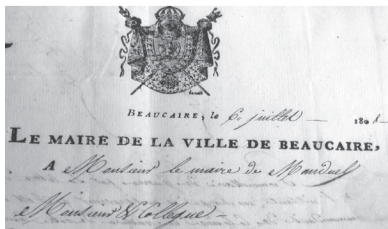 BEAUCAIRE, le 6 juillet — 180
LE MAIRE DE LA VILLE DE BEAUCAIRE,
A Monsieur le maire de Manduel
Monsieur & Collegue —